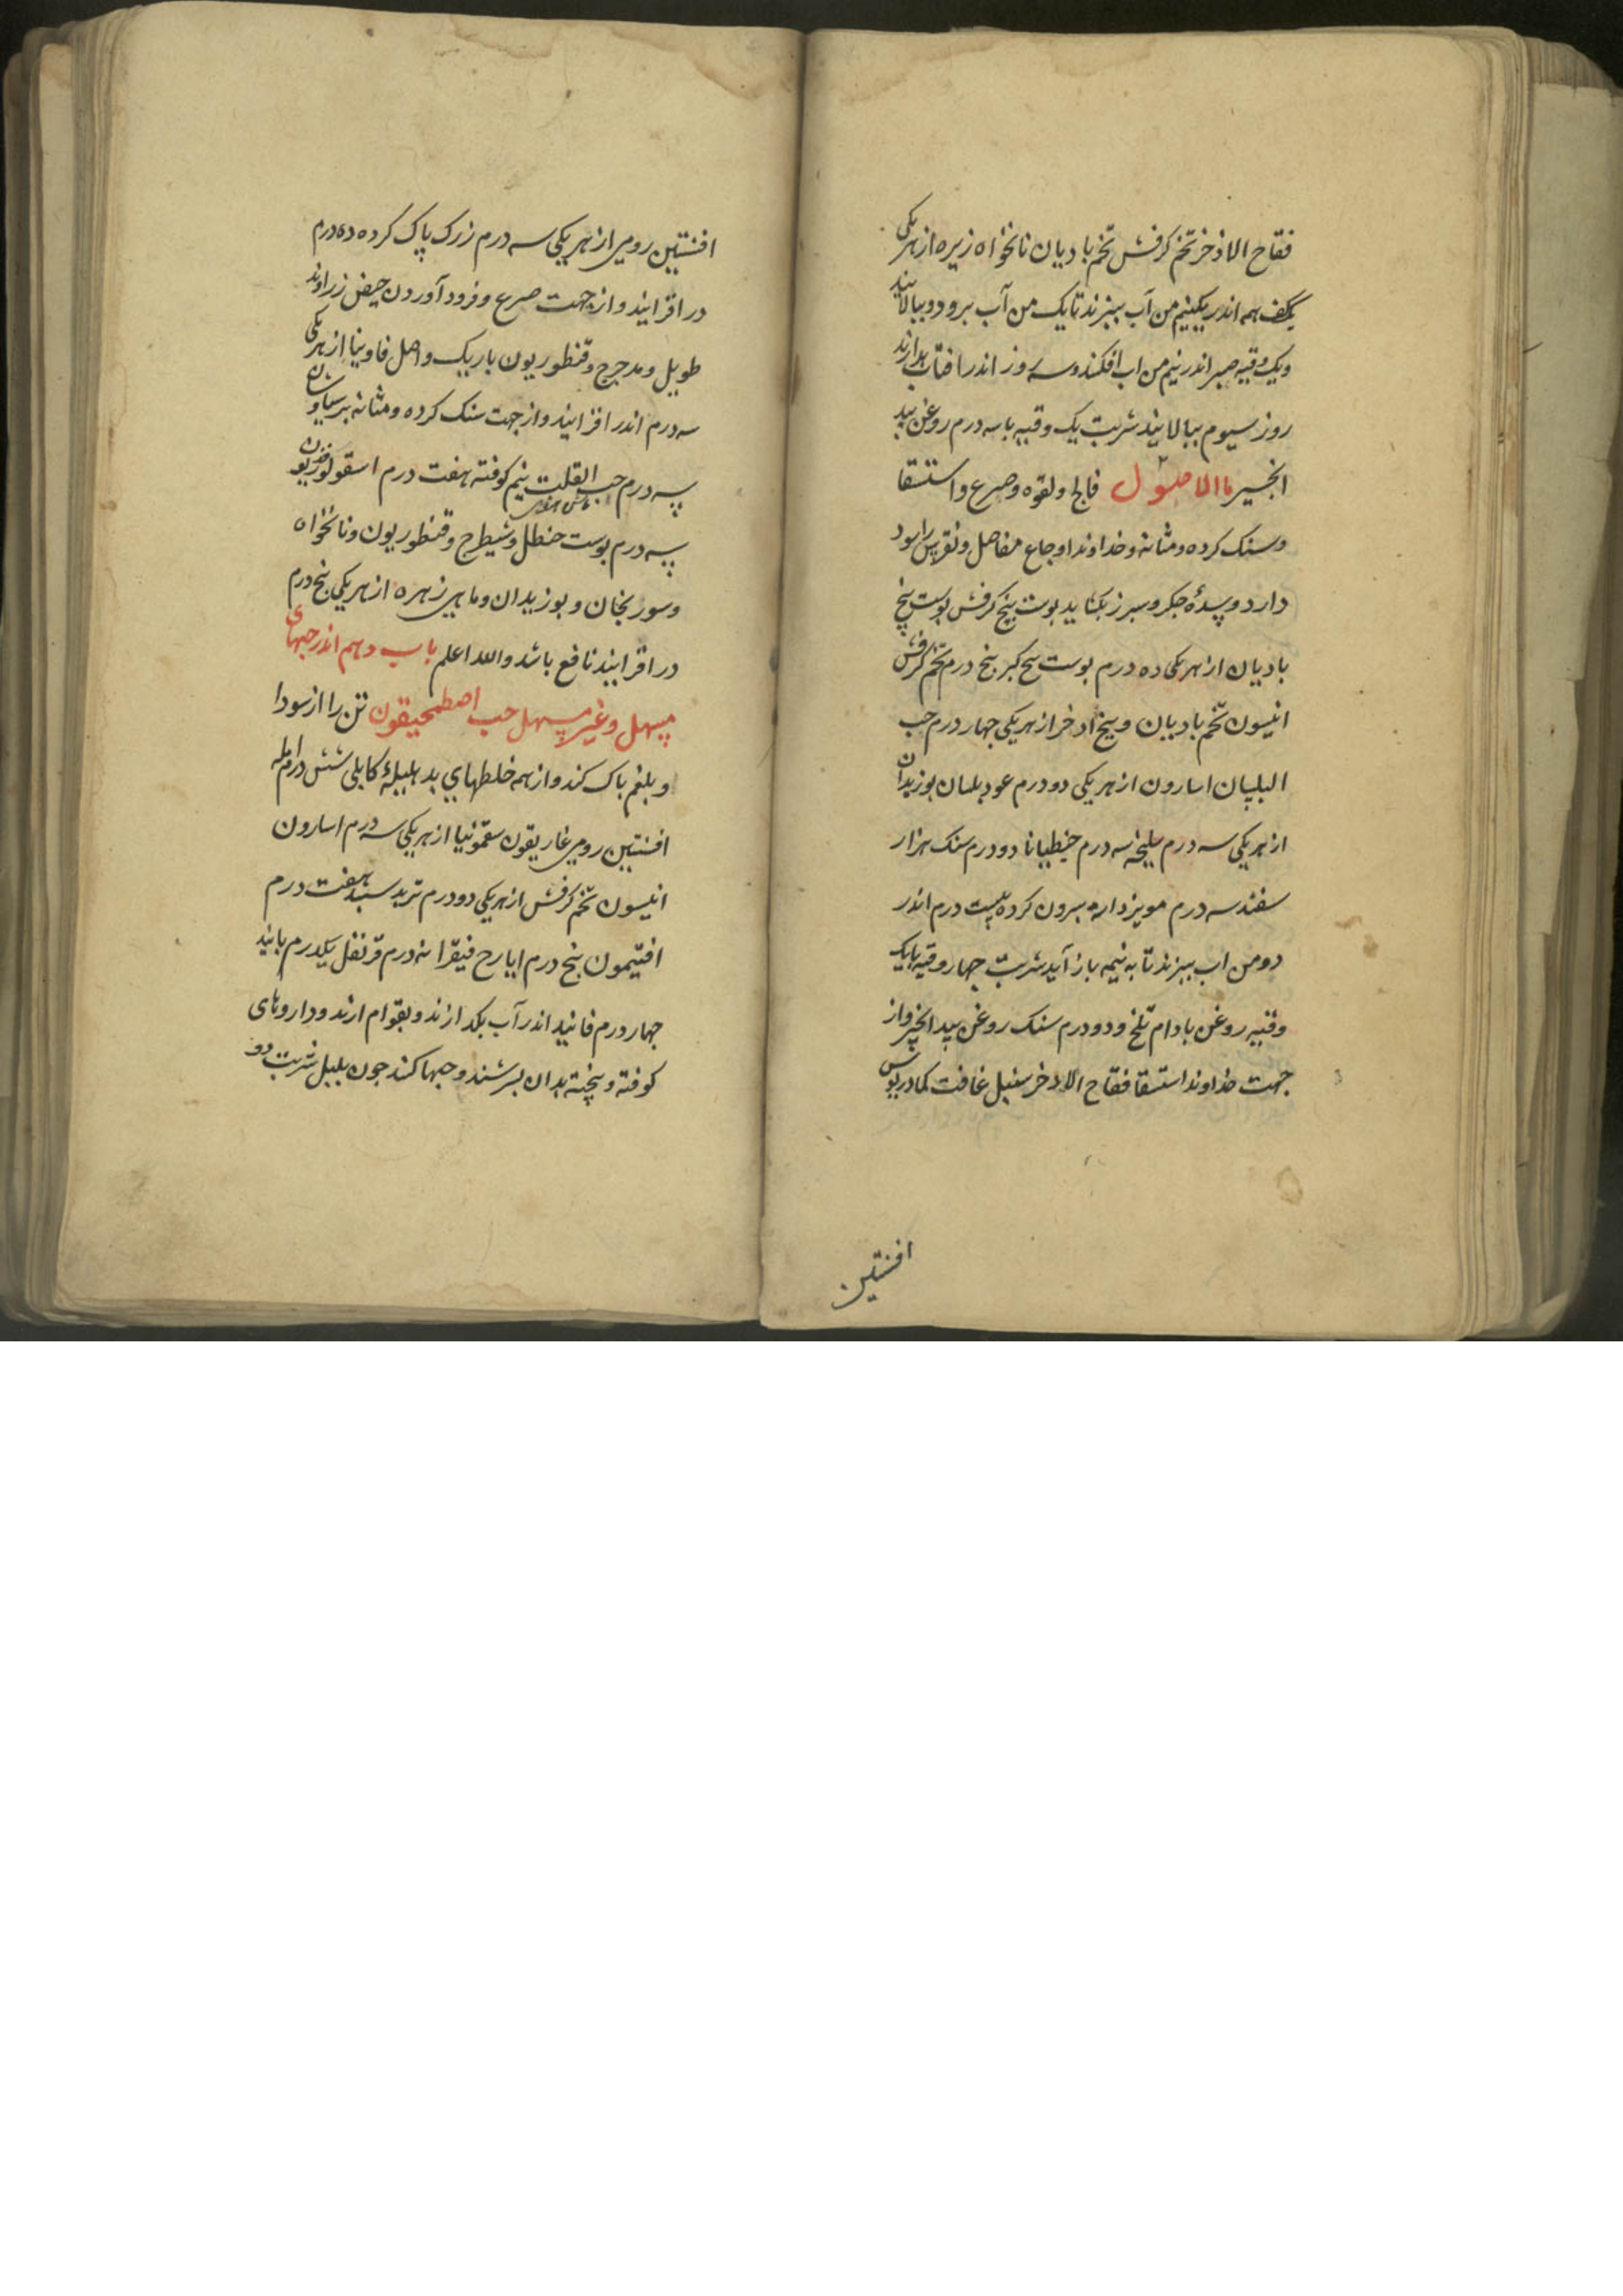 فقاح الاذخر تخم کرفش تخم بادیان نانخواه زیره از هر یکی
یکف همه اندر یکنیم من آب ببزند تا یک من آب برود و ببالایند
ویک وقیه صبر اندر نیم من اب افکند وسه روز اندر افتاب بدارند
روز سیوم ببالایند شربت یک وقیه باسه درم روغن بید
انجیر ماالاصول فالج ولقوه وصرع واستسقا
وسنک کرده ومثانه وخداوند اوجاع مفاصل ونقرس را سود
دارد وسدهٔ جکر وسبرز بکشاید بوست بیخ کرفش بوست بیخ
بادیان از هر یکی ده درم بوست بیخ کبر بنج درم تخم کرفش
انیسون تخم بادیان وبیخ اذخر از هر یکی جهار درم حب
البلسان اسارون از هر یکی دو درم عود بلسان بوزیدان
از هر یکی سه درم سلیخه سه درم جنطیانا دو درم سنک هزار
سفند سه درم مویز دانه بیرون کرده بیست درم اندر
دو من اب ببزند تا به نیمه باز آید شربت جهار وقیه بایک
وقیه روغن بادام تلخ و دو درم سنک روغن بید انجیر واز
جهت خداوند استسقا فقاح الاذخر سنبل غافت کمادریوس
افسنتین
افسنتین رومی از هر یکی سه درم زرک پاک کرده ده درم
در افزایند واز جهت صرع وفرود آوردن حیض زراوند
طویل ومدحرج وقنطوریون باریک واصل فاوینا از هر یکی
سه درم اندر افزایند واز جهت سنک کرده ومثانه برسیاوشان
سه درم حب القلت نیم کوفته هفت درم اسقولوفندریون
سه درم بوست حنظل وشیطرج وقنطوریون ونانخواه
وسورنجان و بوزیدان وماهی زهره از هر یکی بنج درم
در افزایند نافع باشد والله اعلم باب دهم اندر حبهای
مسهل وغیر مسهل حب اصطمحیقون تن را از سودا
وبلغم باک کند واز همه خلطهای بد هلیلهٔ کابلی شش درم امله
افسنتین رومی غاریقون سقمونیا از هر یکی سه درم اسارون
انیسون تخم کرفش از هر یکی دو درم تربد سبید هفت درم
افتیمون بنج درم ایارج فیقرا نه درم قرنفل یکدرم بانید
جهار درم فانید اندر آب بکدازند وبقوام ارند وداروهای
کوفته وبیخته بدان بسرشند وحبها کنند جون بلبل شربت دو